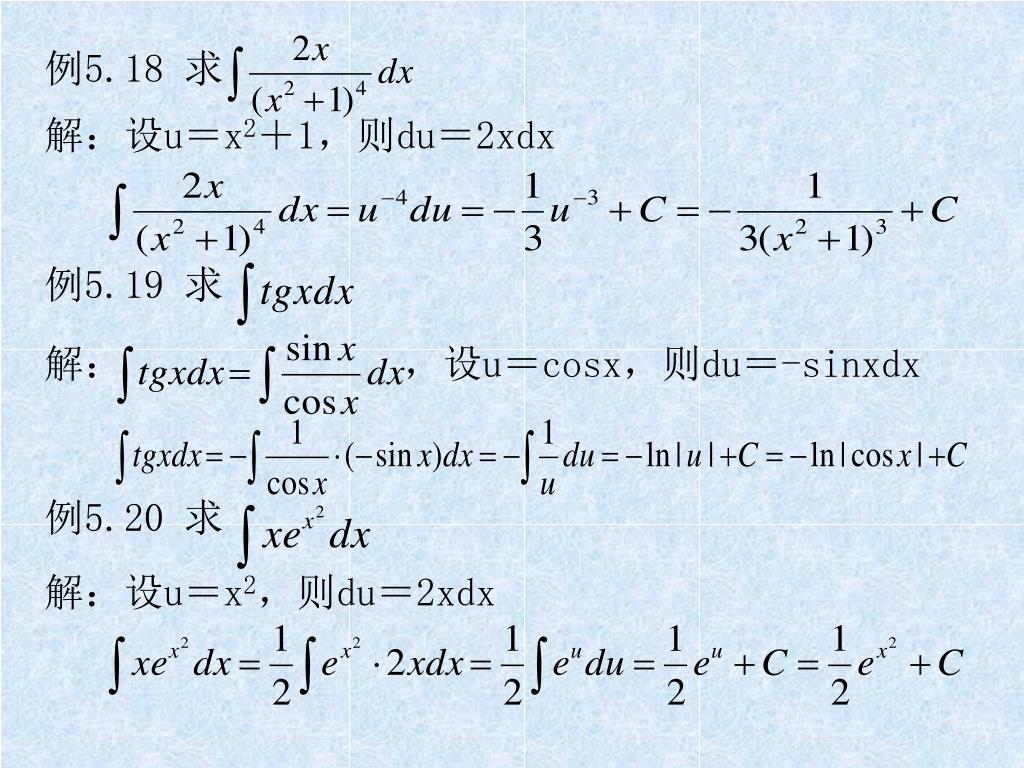 例5.18 求∫ 2x/(x²+1)⁴ dx
解：设u＝x²＋1，则du＝2xdx
∫ 2x/(x²+1)⁴ dx = u⁻⁴du = −1/3 u⁻³ + C = − 1/(3(x²+1)³) + C
例5.19 求 ∫tgxdx
解：∫tgxdx = ∫ sin x/cos x dx，设u＝cosx，则du＝-sinxdx
∫tgxdx = −∫ 1/cos x ·(−sin x)dx = −∫ 1/u du = −ln|u|+C = −ln|cos x|+C
例5.20 求 ∫xe^{x²}dx
解：设u＝x²，则du＝2xdx
∫xe^{x²}dx = 1/2 ∫e^{x²}·2xdx = 1/2 ∫e^u du = 1/2 e^u + C = 1/2 e^{x²} + C